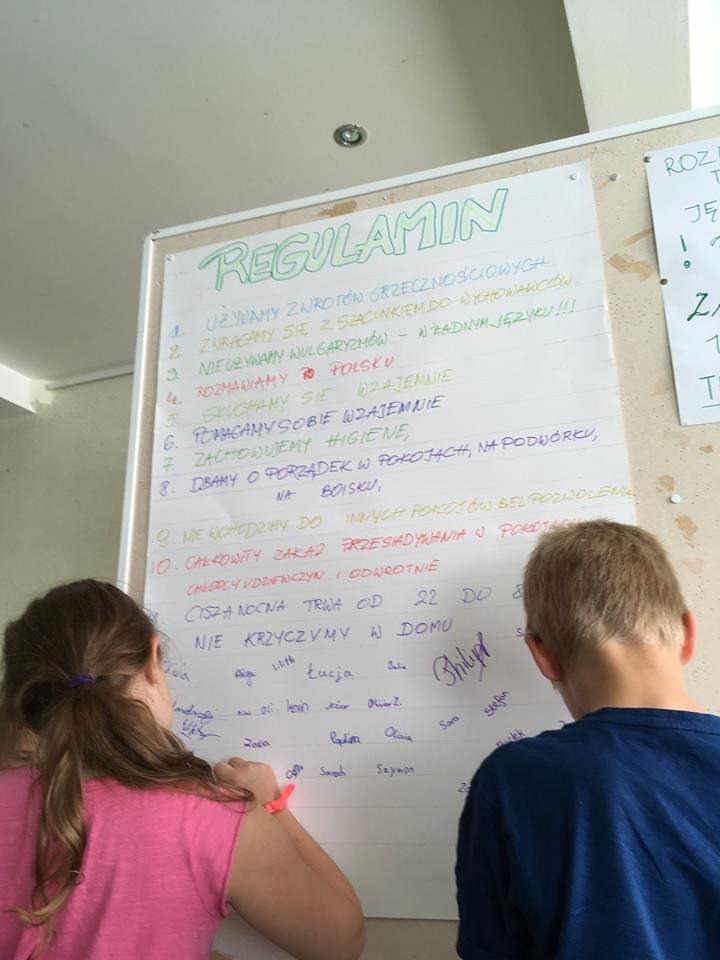 REGULAMIN
1. UŻYWAMY ZWROTÓW GRZECZNOŚCIOWYCH
2. ZWRACAMY SIĘ Z SZACUNKIEM DO WYCHOWAWCÓW
3. NIEUŻYWAMY WULGARYZMÓW - W ŻADNYM JĘZYKU!!!
4. ROZMAWIAMY PO POLSKU
5. SŁUCHAMY SIĘ WZAJEMNIE
6. POMAGAMY SOBIE WZAJEMNIE
7. ZACHOWUJEMY HIGIENĘ,
8. DBAMY O PORZĄDEK W POKOJACH, NA PODWÓRKU,
NA BOISKU,
9. NIE WCHODZIMY DO INNYCH POKOJÓW BEZ POZWOLENIA
10. CAŁKOWITY ZAKAZ PRZESIADYWANIA W POKOJACH
CHŁOPCY U DZIEWCZYN I ODWROTNIE
CISZA NOCNA TRWA OD 22 DO 8
NIE KRZYCZYMY W DOMU
Lilith Łucja Julia Philip
Oliwia Z. Sara Stefan
Zosia Oliwia
Sarah Szymon
ROZ
JĘ
!